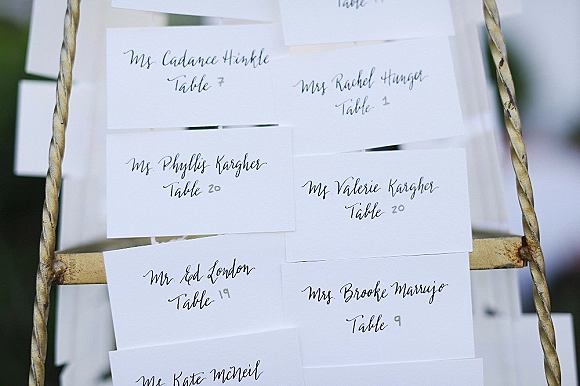 Table 11
Ms. Cadance Hinkle
Table 7
Mrs Rachel Hunger
Table 1
Ms. Phyllis Kargher
Table 20
Ms. Valerie Kargher
Table 20
Mr Ed London
Table 19
Mrs. Brooke Marrujo
Table 9
Ms. Kate McNeil